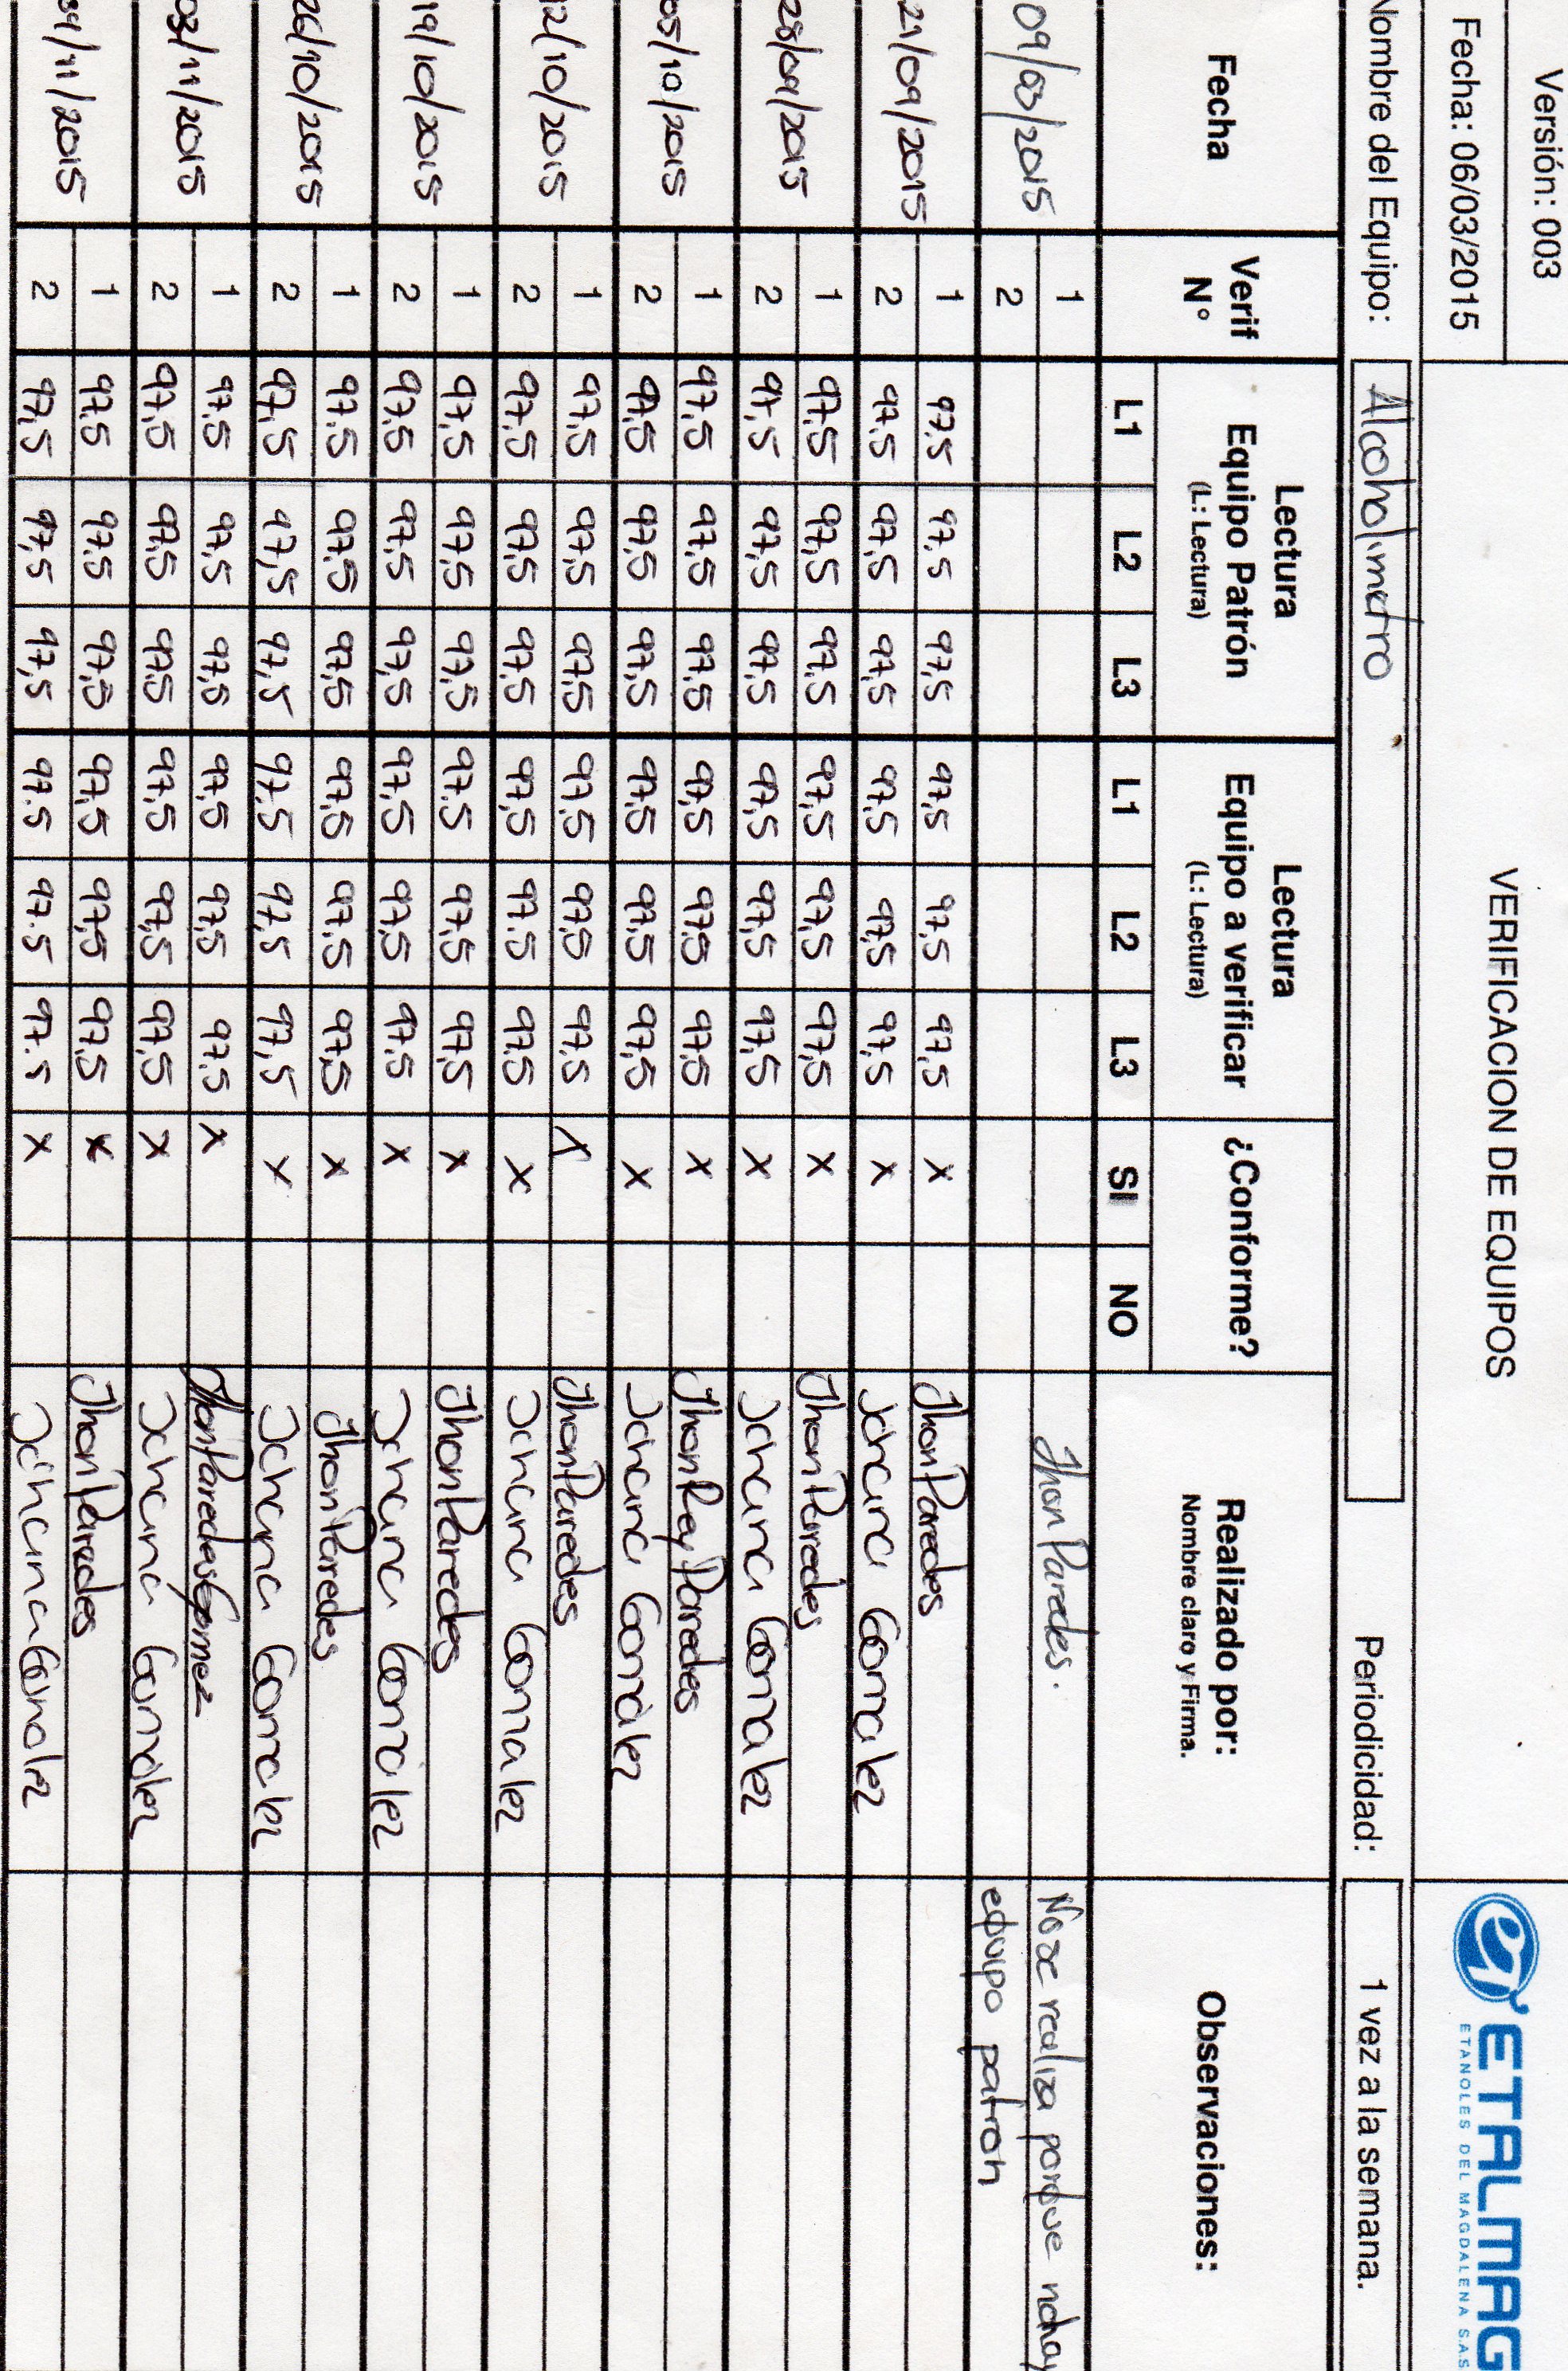 Versión: 003
Fecha: 06/03/2015
VERIFICACION DE EQUIPOS
ETALMAG
ETANOLES DEL MAGDALENA S.A.S
Nombre del Equipo: Alcoholimetro Periodicidad: 1 vez a la semana.
Fecha Verif N° Lectura Equipo Patrón (L: Lectura) Lectura Equipo a verificar (L: Lectura) ¿Conforme? Realizado por: Nombre claro y Firma. Observaciones:
L1 L2 L3 L1 L2 L3 SI NO
09/03/2015 1 Jhon Paredes. No se realiza porque nohay
2 equipo patron
21/09/2015 1 97,5 97,5 97,5 97,5 97,5 97,5 x Jhon Paredes
2 97.5 97,5 97,5 97,5 97,5 97,5 x Johana Gonzalez
28/09/2015 1 97,5 97,5 97,5 97,5 97,5 97,5 x Jhon Paredes
2 97,5 97,5 97,5 97,5 97,5 97,5 x Johana Gonzalez
05/10/2015 1 97,5 97,5 97,5 97,5 97,5 97,5 x Jhon Rey Paredes
2 97,5 97,5 97,5 97,5 97,5 97,5 x Johana González
12/10/2015 1 97,5 97,5 97,5 97,5 97,5 97,5 x Jhon Paredes
2 97,5 97,5 97,5 97,5 97.5 97,5 x Johana Gonzalez
19/10/2015 1 97,5 97,5 97,5 97.5 97,5 97,5 x Jhon Paredes
2 97,5 97,5 97,5 97,5 97,5 97,5 x Johana Gonzalez
26/10/2015 1 97.5 97,5 97,5 97,5 97,5 97,5 x Jhon Paredes
2 97,5 97,5 97,5 97.5 97,5 97,5 x Johana Gonzalez
03/11/2015 1 97.5 97,5 97,5 97,5 97,5 97,5 x Jhon Paredes Gomez
2 97,5 97,5 97,5 97,5 97,5 97,5 x Johana González
09/11/2015 1 97.5 97.5 97,5 97,5 97,5 97,5 x Jhon Paredes
2 97,5 97,5 97,5 97.5 97.5 97.5 x Johana Gonalez